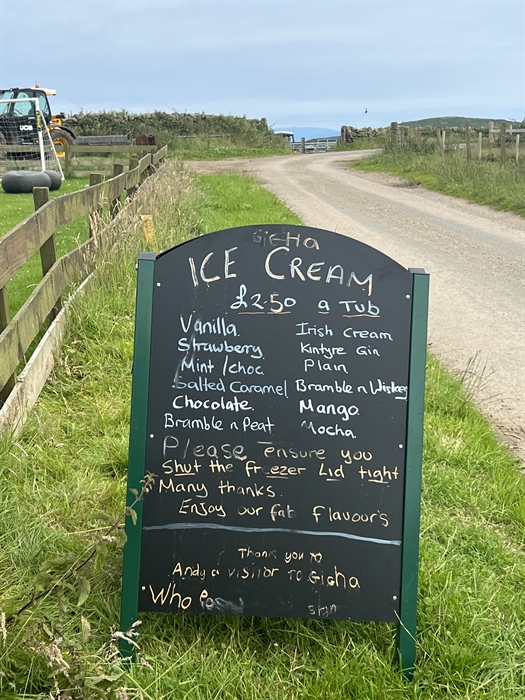 Gigha
ICE CREAM
£2.50 a TUB
Vanilla. Irish Cream
Strawberry Kintyre Gin
Mint/choc. Plain
Salted Caramel Bramble n Whiskey
Chocolate. Mango
Bramble n Peat Mocha
Please ensure you
Shut the freezer Lid tight
Many thanks.
Enjoy our fab flavour's
Thank you to
Andy a visitor to Gigha
Who
sign